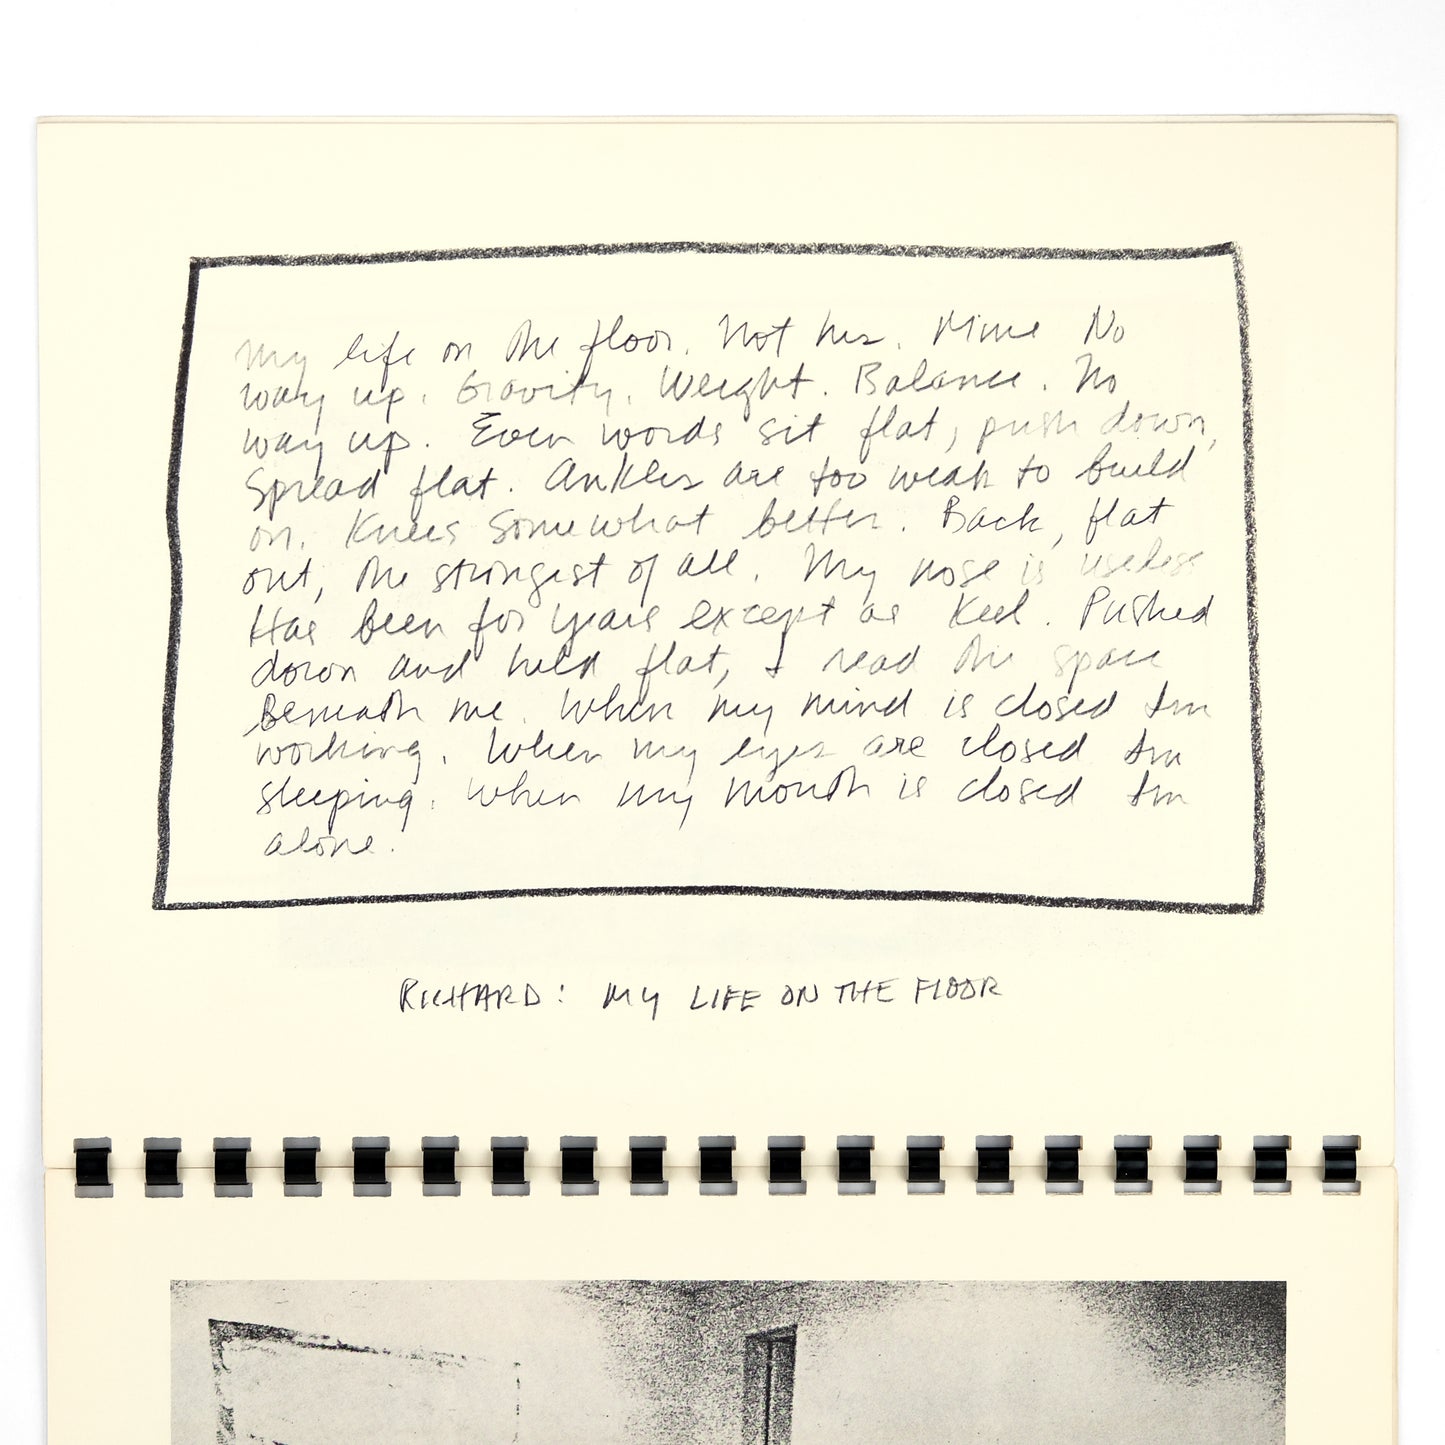 My life on the floor. Not hers. Mine No
way up. Gravity. Weight. Balance. No
way up. Even words sit flat, push down,
Spread flat. Ankles are too weak to build
on. Knees somewhat better. Back, flat
out, the strongest of all. My nose is useless
Has been for years except as keel. Pushed
down and held flat, I read the space
Beneath me. When my mind is closed I'm
working. When my eyes are closed I'm
sleeping. When my mouth is closed I'm
alone.
RICHARD: MY LIFE ON THE FLOOR